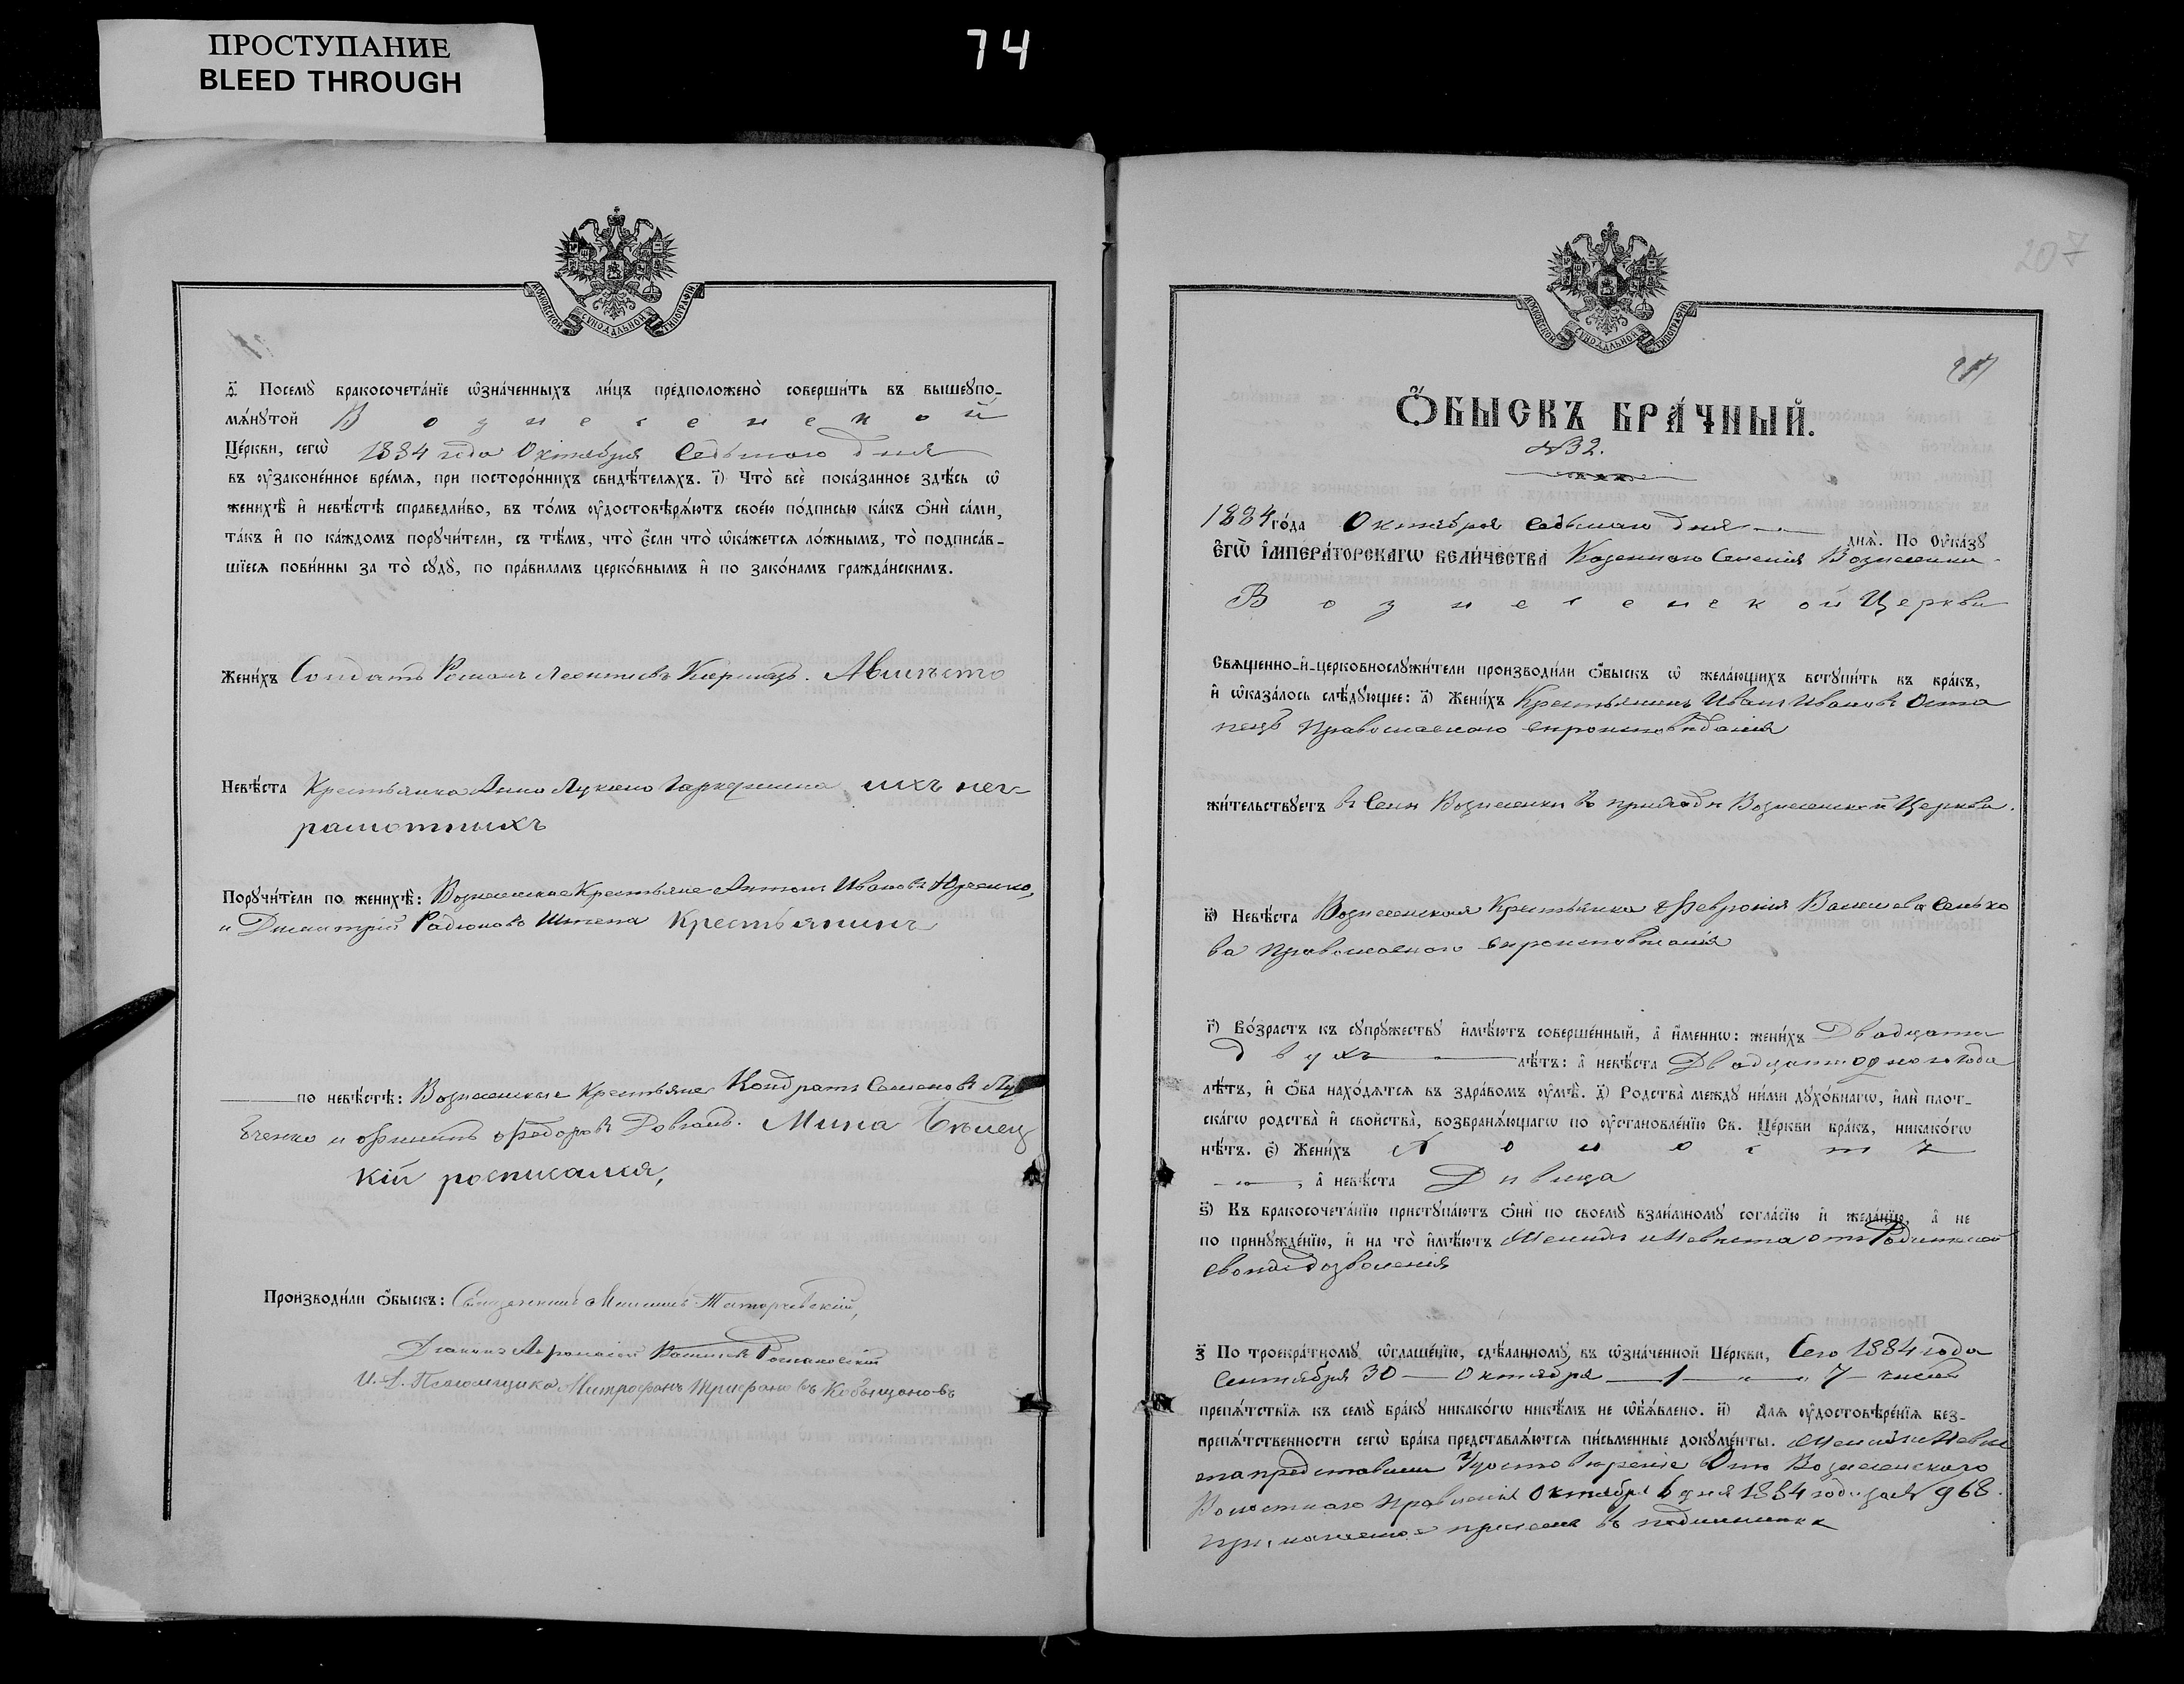 ПРОСТУПАНИЕ
BLEED THROUGH
74
МОСКОВСКОЙ СУНОДАЛЬНОЙ ТИПОГРАФІИ
д҃) Посемꙋ бракосочета́нїе ѡ҆зна́ченныхъ ли́цъ предположено̀ соверши́ть въ вышеꙋпо-
мѧ́нꙋтой Вознесенской
Це́ркви, сегѡ̀ 1884 года Октября Седьмаго дня
въ ᲂу҆зако́ненное вре́мѧ, при посторо́ннихъ свидѣ́телѧхъ. і҃) Что̀ всѐ пока́занное здѣ́сь ѡ҆
женихѣ̀ и҆ невѣ́стѣ справедли́во, въ то́мъ ᲂу҆достовѣрѧ́ютъ свое́ю по́дписью ка́къ ѻ҆нѝ са́ми,
та́къ и҆ по ка́ждомъ порꙋчи́тели, съ тѣ́мъ, что̀ є҆́сли что̀ ѡ҆ка́жетсѧ ло́жнымъ, то̀ подписа́в-
шїесѧ пови́нны за то̀ сꙋдꙋ̀, по пра́виламъ церко́внымъ и҆ по зако́намъ гражда́нскимъ.
Жени́хъ Солдатъ Романъ Леонтіевъ
Невѣ́ста Крестьянка Анна ихъ нег-
рамотныхъ
Порꙋчи́тели по женихѣ̀: Вознесенскіе Крестьяне Антонъ Ивановъ
и Димитрій Радіоновъ Шпета Крестьянинъ
по невѣ́стѣ: Вознесенскіе Крестьяне Кондратъ Семеновъ
и Филиппъ Федоровъ Довгаль. Мина Бѣлец
кій росписался,
Производи́ли ѻ҆́быскъ: Священникъ
Діаконъ Афанасій Васильевъ Романовскій
И. д. Псаломщика Митрофанъ
207
Ѻ҆́БЫСКЪ БРА́ЧНЫЙ.
№32.
1884 го́да Октября седьмаго дня днѧ̀. По ᲂу҆ка́зꙋ
Є҆гѡ̀ І҆мпера́торскагѡ Вели́чества Казеннаго Селенія Вознесенки
Вознесенской Церкви
Свѧще́нно-и҆-церковнослꙋжи́тели производи́ли ѻ҆́быскъ ѡ҆ жела́ющихъ встꙋпи́ть въ бра́къ,
и҆ ѡ҆каза́лось слѣ́дꙋющее: а҃) Жени́хъ Крестьянинъ Иванъ Ивановъ Оста
пецъ Православнаго вѣроисповѣданія
жи́тельствꙋетъ въ Селѣ Вознесенки въ приходѣ Вознесенской Церкви.
в҃) Невѣ́ста Вознесенская Крестьянка Февронія Василіева Сенько
ва Православнаго вѣроисповѣданія
г҃) Во́зрастъ къ сꙋпрꙋ́жествꙋ и҆мѣ́ютъ соверше́нный, а҆ и҆́меннѡ: жени́хъ Двадцати
двухъ лѣ́тъ: а҆ невѣ́ста Двадцати одного года
лѣ́тъ, и҆ ѻ҆́ба нахо́дѧтсѧ въ здра́вомъ ᲂу҆мѣ̀. д҃) Родства̀ междꙋ ни́ми дꙋхо́внагѡ, и҆лѝ плот-
ска́гѡ родства̀ и҆ сво́йства, возбранѧ́ющагѡ по ᲂу҆становле́нїю Св. Це́ркви бра́къ, никако́гѡ
нѣ́тъ. є҃) Жени́хъ Холостъ
, а҆ невѣ́ста Дѣвица
ѕ҃) Къ бракосочета́нїю пристꙋпа́ютъ ѻ҆нѝ по своемꙋ̀ взаи́мномꙋ согла́сїю и҆ жела́нїю, а҆ не
по принꙋжде́нїю, и҆ на то̀ и҆мѣ́ютъ Женихъ и Невѣста отъ Родителей
своихъ дозволенія
з҃ По троекра́тномꙋ ѡ҆глаше́нїю, сдѣ́ланномꙋ въ ѡ҆зна́ченной Це́ркви, Сего 1884 года
Сентября 30 — Октября — 1 — „ — „ 7 — числа
препѧ́тствїѧ къ семꙋ̀ бра́кꙋ никако́гѡ никѣ́мъ не ѡ҆б̾ѧ́влено. и҃) Длѧ ᲂу҆достовѣре́нїѧ без-
препѧ́тственности сегѡ̀ бра́ка представлѧ́ютсѧ пи́сьменные докꙋме́нты. Женихъ и Невѣс
та представили Удостовѣреніе Отъ Вознесенскаго
Волостнаго Правленія Октября 6 дня 1884 года за № 968.